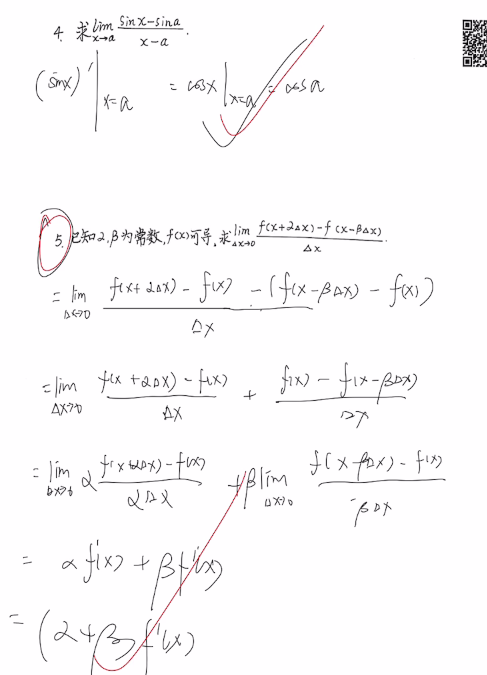 4. 求 lim x→a (sinx-sina)/(x-a).
(sinx)' |x=a = cosx |x=a = cosa
5. 已知2,β为常数,f(x)可导.求 lim Δx→0 (f(x+2Δx)-f(x-βΔx))/Δx.
= lim Δx→0 (f(x+2Δx)-f(x)-(f(x-βΔx)-f(x)))/Δx
= lim Δx→0 (f(x+2Δx)-f(x))/Δx + (f(x)-f(x-βΔx))/Δx
= lim Δx→0 α (f(x+2Δx)-f(x))/(αΔx) + β lim Δx→0 (f(x-βΔx)-f(x))/(-βΔx)
= αf'(x) + βf'(x)
= (α+β)f'(x)